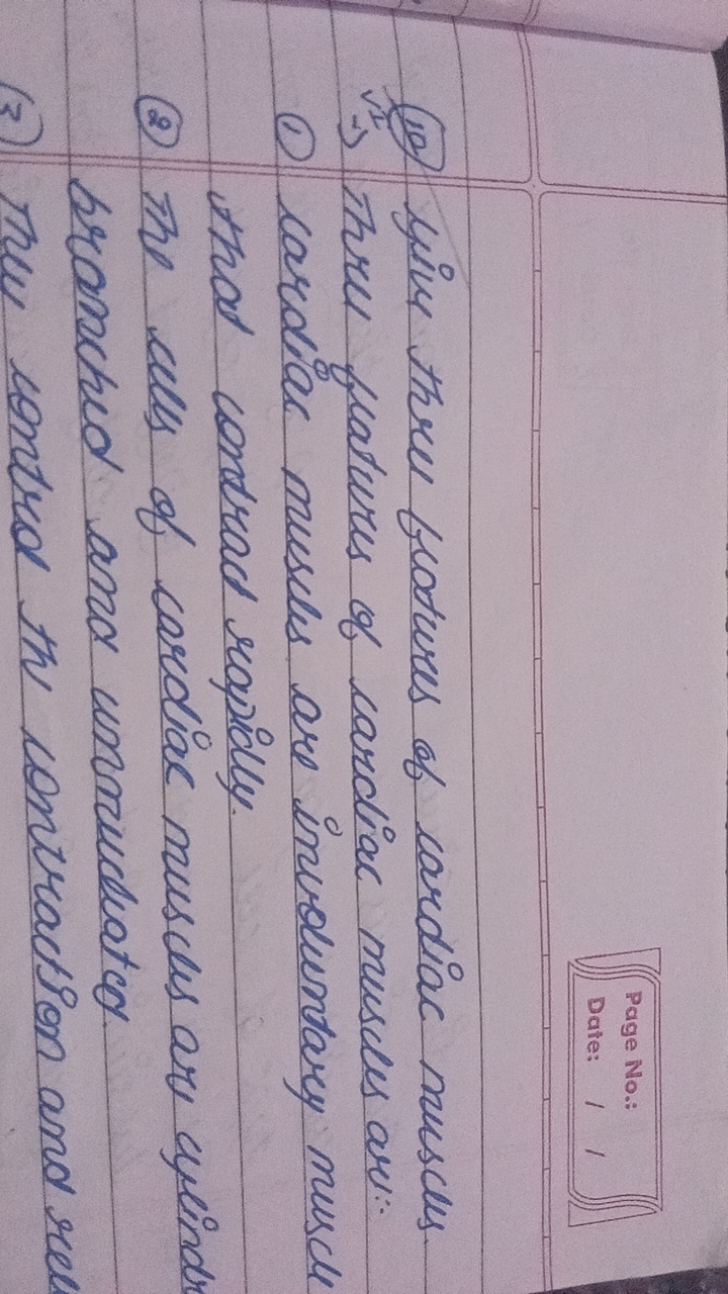 Page No.:
Date: / /
(10) Give three features of cardiac muscles.
V.I → Three features of cardiac muscles are:-
① Cardiac muscles are involuntary muscle
that contract rapidly.
② The cells of cardiac muscles are cylindr
branched and uninucleated.
(3) They control the contraction and rel